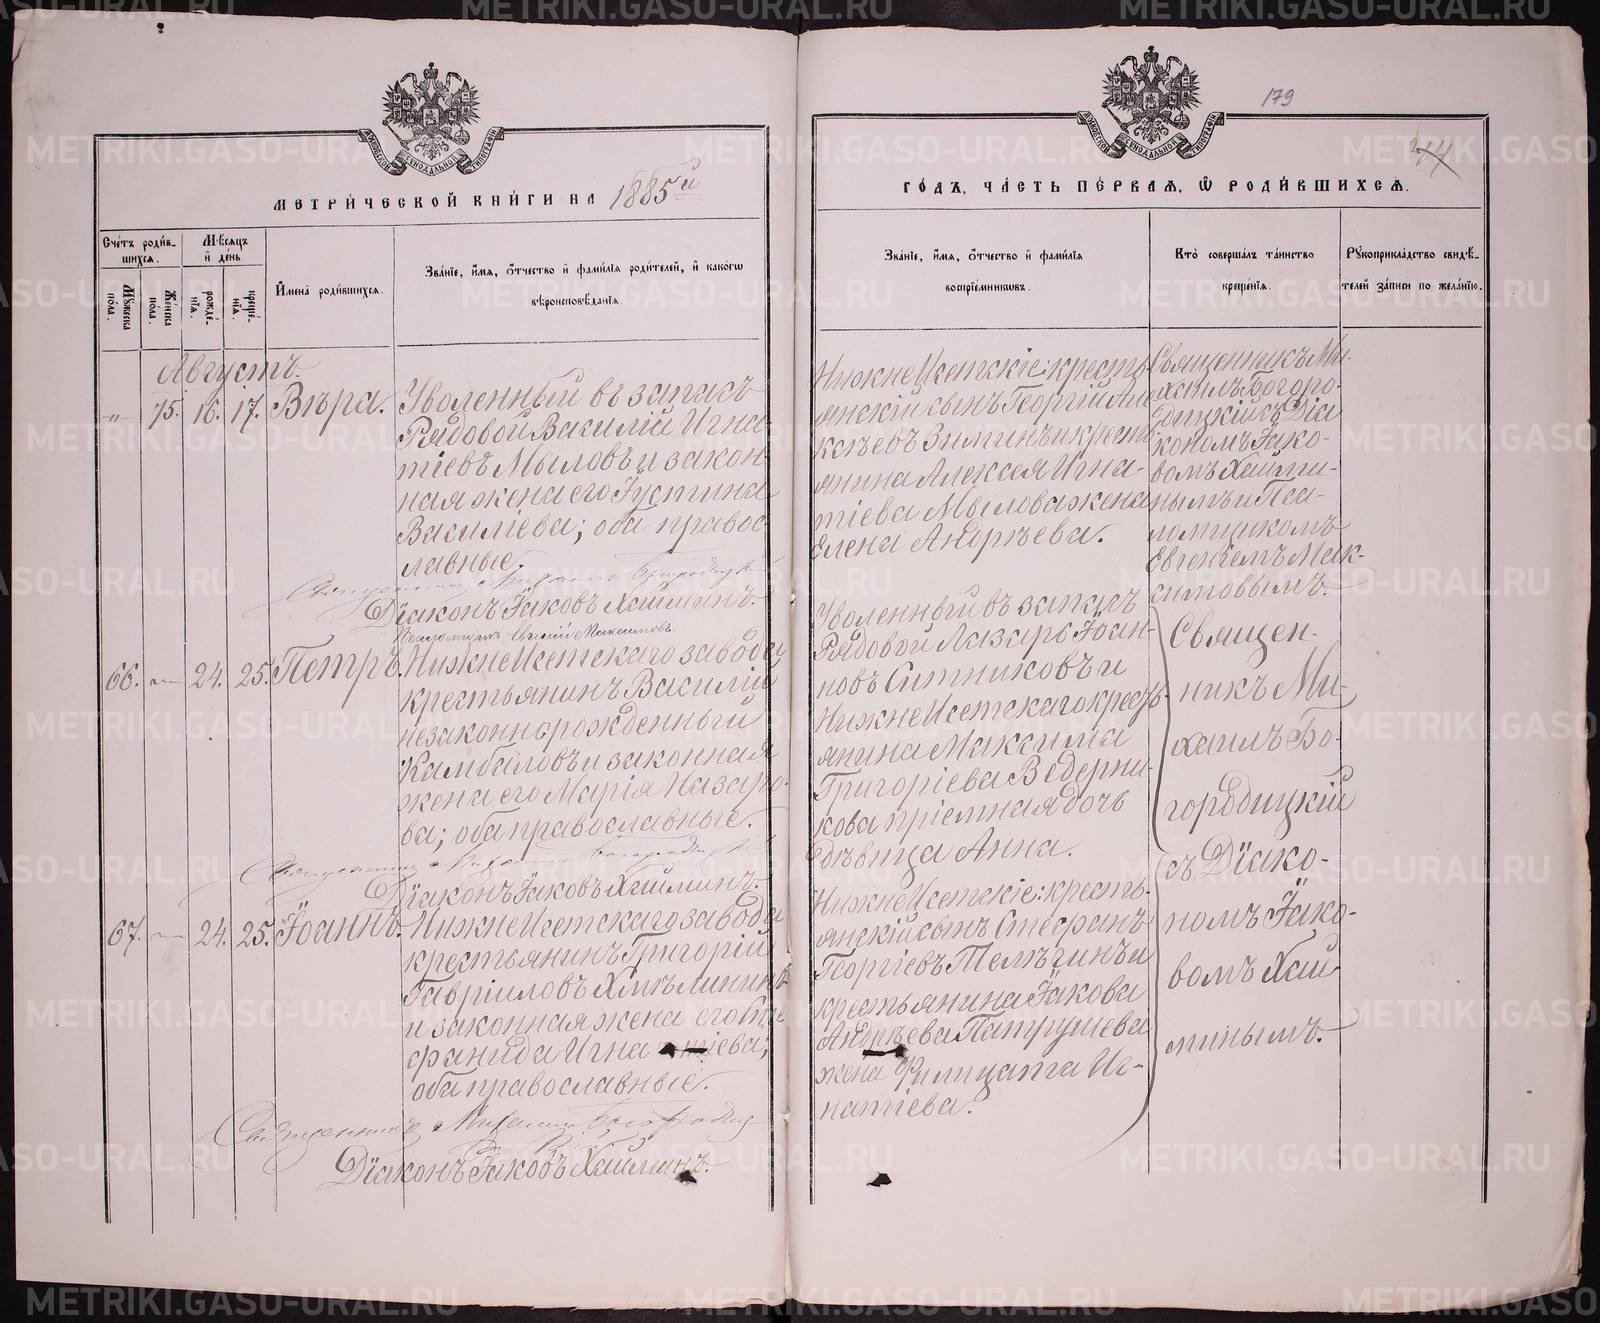 179
44
МЕТРИ́ЧЕСКОЙ КНИ́ГИ НА 1885й
ГО́ДЪ, ЧА́СТЬ ПЕ́РВАЯ, Ѡ РОДИ́ВШИХСЯ.
Сче́тъ роди́в-
шихся.
Мѣсяцъ
и́ де́нь
Му́жеска
по́ла.
Же́нска
по́ла.
рожде́-
нїя.
креще́-
нїя.
И́мена роди́вшихся.
Зва́нїе, и́мя, о́тчество и́ фами́лїя роди́телей, и́ како́гѡ
вѣроисповѣ́данїя.
Зва́нїе, и́мя, о́тчество и́ фами́лїя
воспрїе́мникѡвъ.
Кто̀ соверша́лъ та́инство
креще́нїя.
Рꙋкоприкла́дство свидѣ́-
телей за́писи по жела́нїю.
Августъ.
" 75. 16. 17. Вѣра.
Уволенный въ запасъ
Рядовой Василій Игна
тіевъ Мыловъ и закон
ная жена его Іустина
Василіева; оба правос-
лавные.
Священникъ Михаилъ Богородицкій
Діаконъ Іаковъ Хайминъ.
Псаломщикъ Евгеній Максимовъ.
НижнеИсетскіе: кресть
янскій сынъ Георгій Але
ксѣевъ Зиминъ и крест
янина Алексея Игна-
тіева Мылова жена
Елена Андрѣева.
Священникъ Ми-
хаилъ Богоро-
дицкій съ Діа
кономъ Іако-
вомъ Хайми-
нымъ и Пса-
ломщикомъ
Евгеніемъ Мак-
симовымъ.
66. — 24. 25. Петръ.
НижнеИсетскаго завода
крестьянинъ Василій
незаконнорожденный
Камбаловъ и законная
жена его Марія Назаро-
ва; оба православные.
Священникъ Михаилъ Богородицкій
Діаконъ Іаковъ Хайминъ.
Уволенный въ запасъ
Рядовой Лазарь Іоан-
новъ Ситниковъ и
НижнеИсетскаго кресть
янина Максима
Григоріева Ведерни-
кова пріемная дочь
дѣвица Анна.
Священ-
никъ Ми-
хаилъ Бо-
городицкій
съ Діако-
номъ Іако-
вомъ Хай
минымъ.
67. — 24. 25. Іоаннъ.
НижнеИсетскаго завода
крестьянинъ Григорій
Гавріиловъ Хмѣлининъ
и законная жена его Сте
фанида Игнатіева;
оба православные.
Священникъ Михаилъ Богородицкій
Діаконъ Іаковъ Хайминъ.
НижнеИсетскіе: кресть-
янскій сынъ Стефанъ
Георгіевъ Телѣгинъ и
крестьянина Іакова
Андрѣева Патрушева
жена Филицата Иг-
натіева.
METRIKI.GASO-URAL.RU